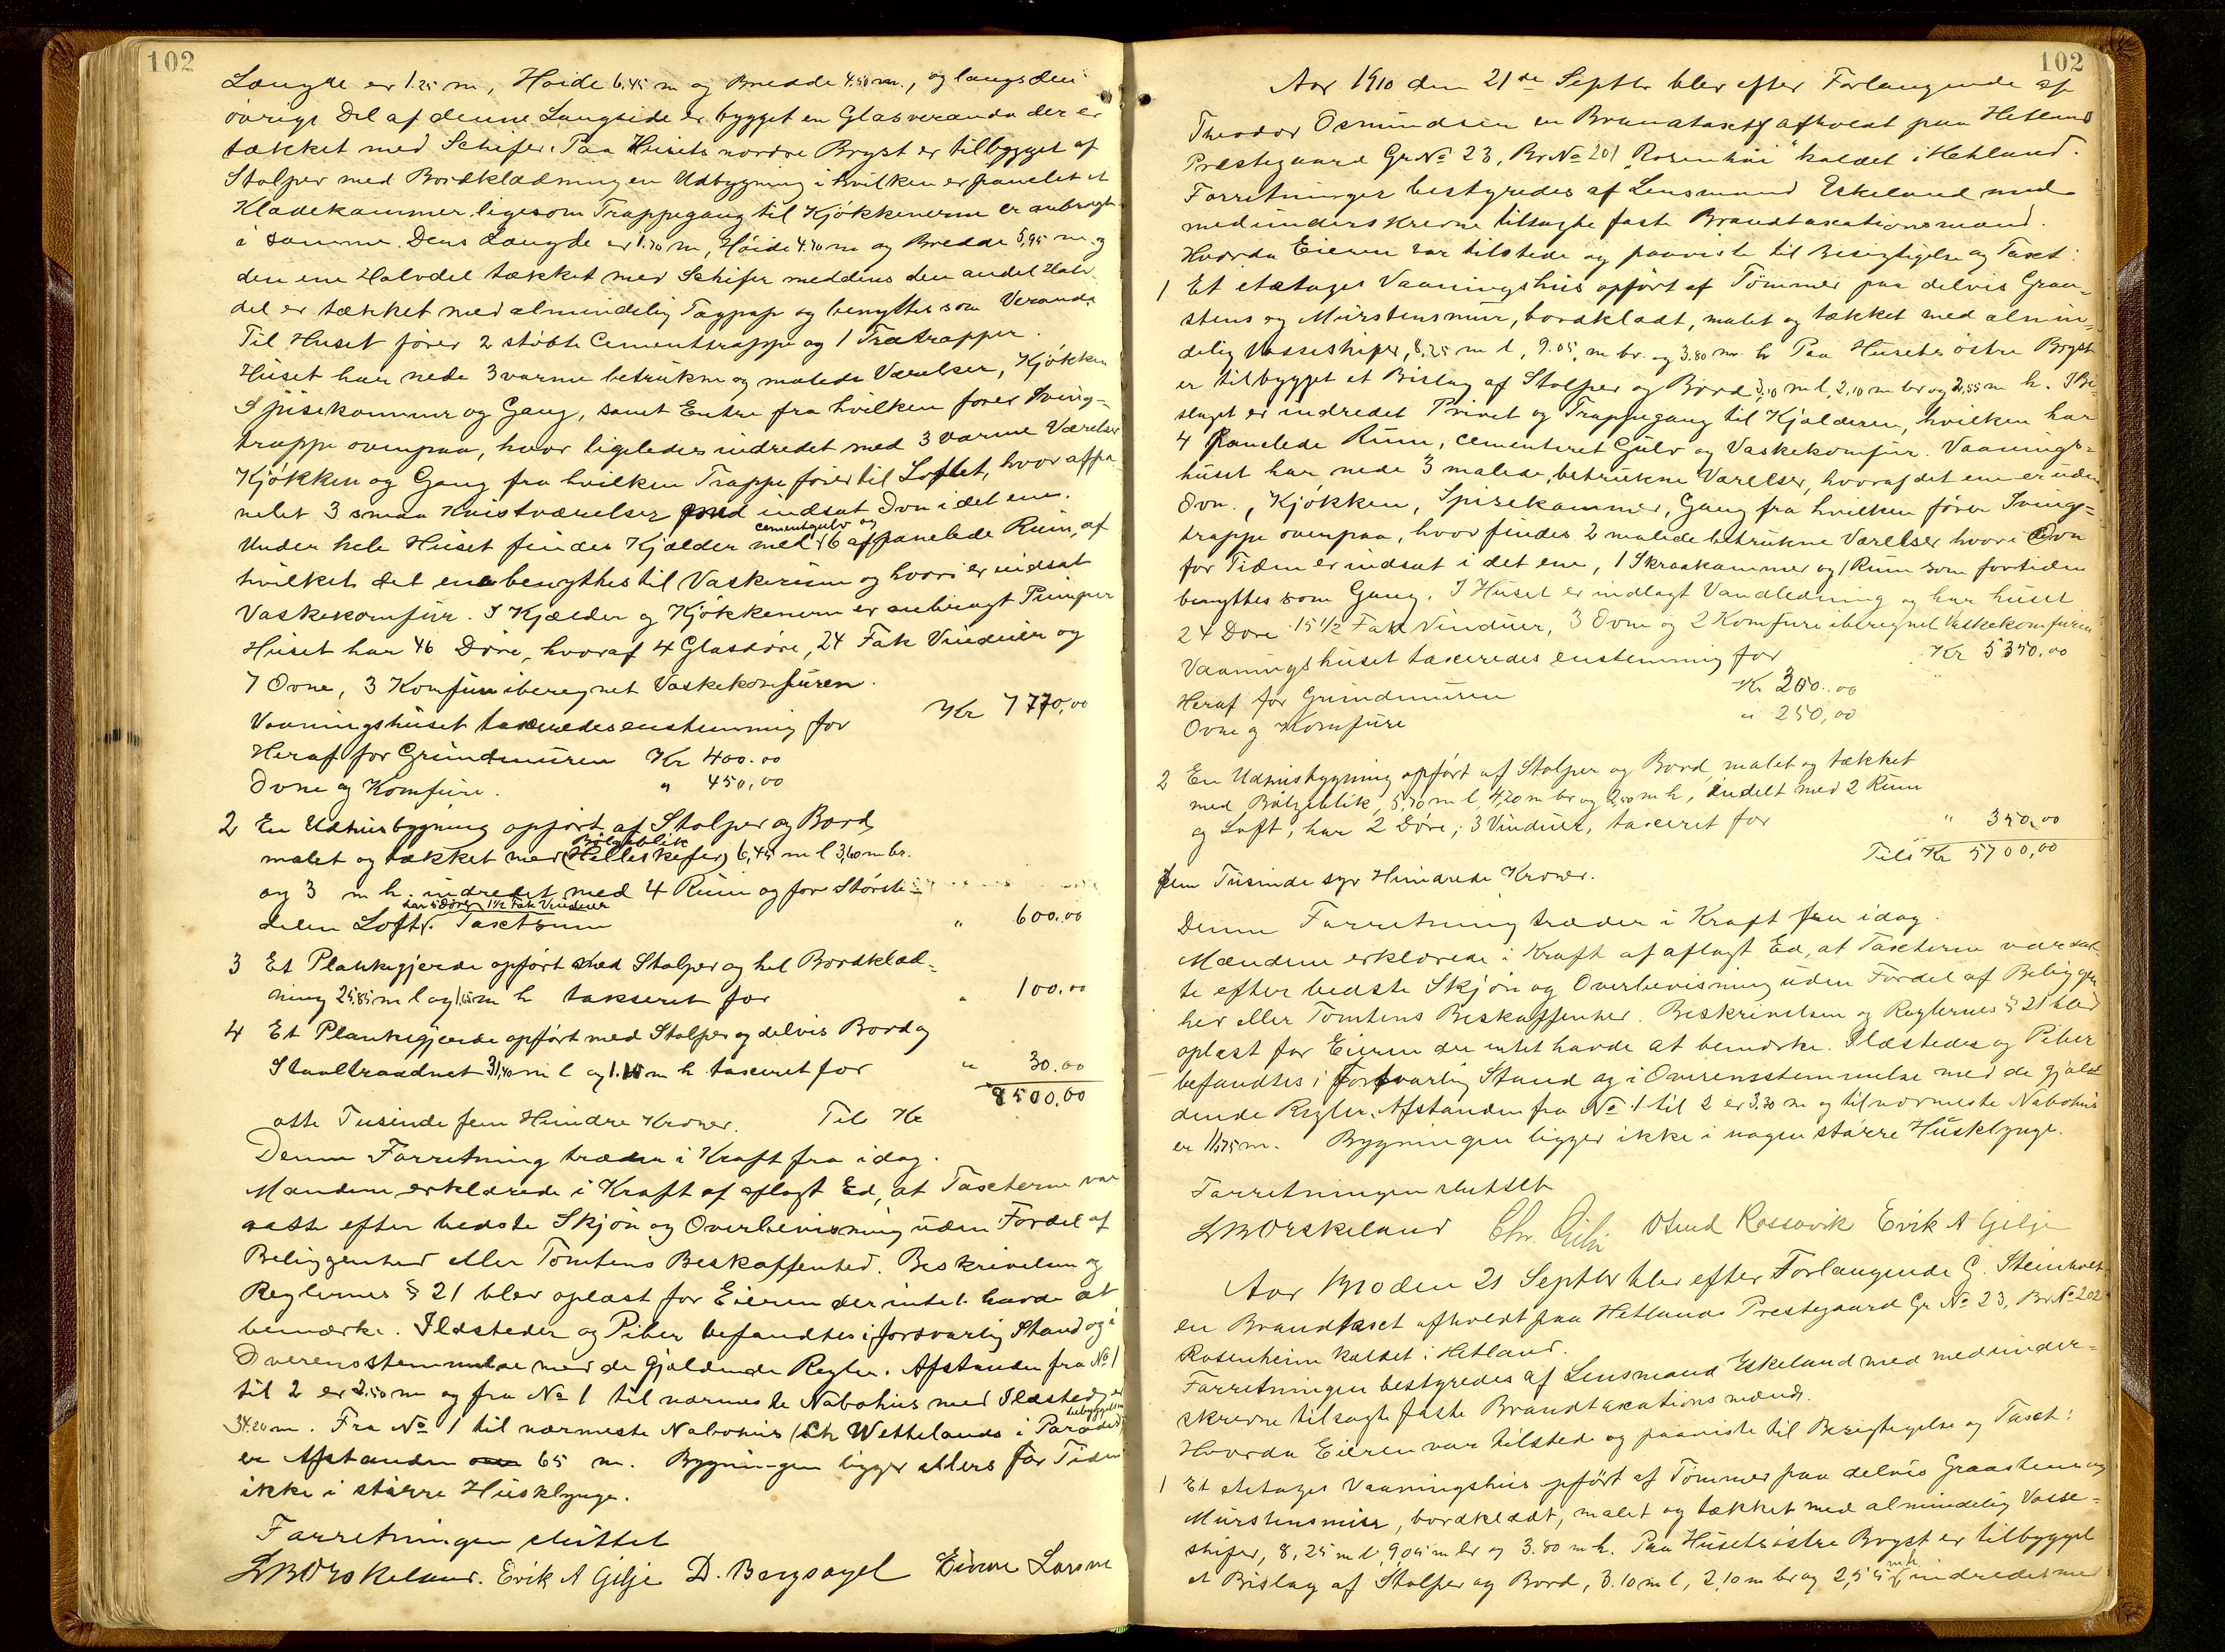 102
Længde er 1.25 m, Høide 6.45 m og Bredde 4.50 m., og langs den
øvrige Del af denne Langside er bygget en Glasveranda der er
tækket med Schifer. Paa Husets nordre Bryst er tilbygget af
Stolper med Bordklædning en Udbygning i hvilken er panelet et
Klædekammer, ligesom Trappegang til Kjøkkenerne er anbragt
i samme. Dens Længde er 1.70 m, Høide 4.70 m og Bredde 5,95 m. og
den ene Halvdel tækket med Schifer meddens den andel Halv
del er tækket med almindelig Tagpap og benyttes som Veranda
Til Huset fører 2 støbte Cementtrappe og 1 Trætrapper.
Huset har nede 3 varme betrukne og malede Værelser, Kjøkken
Spisekammer og Gang, samt Entre fra hvilken fører Sving-
trappe ovenpaa, hvor ligeledes indredet med 3 varme Værelser
Kjøkken og Gang fra hvilken Trappe fører til Loftet, hvor afpa
nelet 3 smaa Kvistværelser med indsat Ovn i det ene.
Under hele Huset findes Kjælder med cementgulv og 6 afpanelede Rum, af
hvilket det ene benyttes til Vaskerum og hvori er indsat
Vaskekomfur. I Kjælder og Kjøkkenerne er anbragt Pumper
Huset har 46 Døre, hvoraf 4 Glasdøre, 24 Fak Vinduer og
7 Ovne, 3 Komfur iberegnet Vaskekomfuren.
Vaaningshuset taxeredes enstemmig for Kr 7770,00
Heraf for Grundmuren Kr 400.00
Ovne og Komfure. " 450,00
2 En Udhusbygning opført af Stolper og Bord,
malet og tækket med (Helleskefer) Bølgeblik 6,45 m l 3,60 m br.
og 3 m h. indredet med 4 Rum og for Største-
delen Loft. har 5 Døre, 1 1/2 Fak Vinduer Taxtsum " 600.00
3 Et Plankegjerde opført med Stolper og hel Bordklæd-
ning 25,85 m l og 1,65 m h takseret for " 100.00
4 Et Plankegjerde opført med Stolper og delvis Bord og
Staaltraadnet 31,40 m l og 1.15 m h taxeret for " 30.00
otte Tusinde fem Hundre Kroner. Til Kr 8500.00
Denne Forretning træder i Kraft fra idag.
Mændene erklærede i Kraft af aflagt Ed, at Taxterne var
satte efter bedste Skjøn og Overbevisning uden Fordel af
Beliggenhed eller Tomtens Beskaffenhed. Beskrivelsen og
Reglernes § 21 blev oplæst for Eieren der intet havde at
bemærke. Ildsteder og Piber befandtes i forsvarlig Stand og i
Overensstemmelse med de gjældende Regler. Afstanden fra No 1
til 2 er 2.50 m og fra No 1 til nærmeste Nabohus med Ildsted er
34.20 m. Fra No 1 til nærmeste Nabohus (Ch Wettelands i Paradis) bebyggelsen
er Afstanden 65 m. Bygningen ligger ellers for Tiden
ikke i større Husklynge.
Forretningen sluttet
LBOEskeland. Erik A Gilje D. Bergsagel Einar Larsen
102
Aar 1910 den 21de Septbr blev efter Forlangende af
Theodor Osmundsen en Brandtaxt afholdt paa Hetland
Præstegaard Gr No 23, Br No 201 "Rosenhøi" kaldet i Hetland.
Forretninger bestyredes af Lensmand Eskeland med
medunderskrevne tilsagte faste Brandtaxationsmænd.
Hvorda Eieren var tilstede og paaviste til Besigtigelse og Taxt:
1 Et etetages Vaaningshus opført af Tømmer paa delvis Graa-
stens og Murstensmur, bordklædt, malet og tækket med almin-
delig Vosseskifer, 8,25 m l, 9.05 m br. og 3.80 m h Paa Husets østre Bryst
er tilbygget et Bislag af Stolper og Bord 3,10 m l, 2,10 m br og 2,55 m h. I Bi-
slaget er indredet Privet og Trappegang til Kjælderen, hvilken har
4 panelede Rum, cementeret Gulv og Vaskekomfur. Vaanings-
huset har nede 3 malede, betrukne Værelser, hvoraf det ene er uden
Ovn., Kjøkken, Spisekammer, Gang fra hvilken fører Sving-
trappe ovenpaa, hvor findes 2 malede betrukne Værelser hvori Ovn
for Tiden er indsat i det ene, 1 Skraakammer og 1 Rum som fortiden
benyttes som Gang. I Huset er indlagt Vandledning og har huset
24 Døre 15 1/2 Fak Vinduer, 3 Ovne og 2 Komfure iberegnet Vaskekomfuren
Vaaningshuset taxeredes enstemmig for Kr 5350.00
Heraf for Grundmuren Kr 200.00
Ovne og Komfure " 250,00
2 En Udhusbygning opført af Stolper og Bord, malet og tækket
med Bølgeblik, 5,70 m l, 4,20 m br og 2,50 m h, indelt med 2 Rum
og Loft, har 2 Døre, 3 Vinduer, taxeret for " 350,00
Tils Kr 5700,00
fem Tusinde syv Hundrede Kroner.
Denne Forretning træder i Kraft fra idag.
Mændene erklærede i Kraft af aflagt Ed, at Taxterne var sat-
te efter bedste Skjøn og Overbevisning uden Fordel af Beliggen
hed eller Tomtens Beskaffenhed. Beskrivelsen og Reglernes § 21 blev
oplæst for Eieren der intet havde at bemærke. Ildsteder og Piber
befandtes i forsvarlig Stand og i Overensstemmelse med de gjæld
dende Regler. Afstanden fra No 1 til 2 er 3.30 m og til nærmeste Nabohus
er 11,75 m. Bygningen ligger ikke i nogen større Husklynge.
Forretningen sluttet
LBOEskeland Chr. Gilje Osmd Rossavik Erik A Gilje
Aar 1910 den 21 Septbr blev efter Forlangende G. Steinholt
en Brandtaxt afholdt paa Hetlands Prestegaard Gr No 23, Br No 202
Rosenheim kaldet i Hetland.
Forretningen bestyredes af Lensmand Eskeland med medunder-
skrevne tilsagte faste Brandtaxations mænd.
Hvorda Eieren var tilstede og paaviste til Besigtigelse og Taxt:
1 Et etetages Vaaningshus opført af Tømmer paa delvis Graastens og
Murstensmur, bordklædt, malet og tækket med almindelig Vosse-
skifer, 8,25 m l 9,05 m br og 3.80 m h. Paa Husets østre Bryst er tilbygget
et Bislag af Stolper og Bord, 3.10 m l, 2,10 m br og 2,55 m h. indredet med